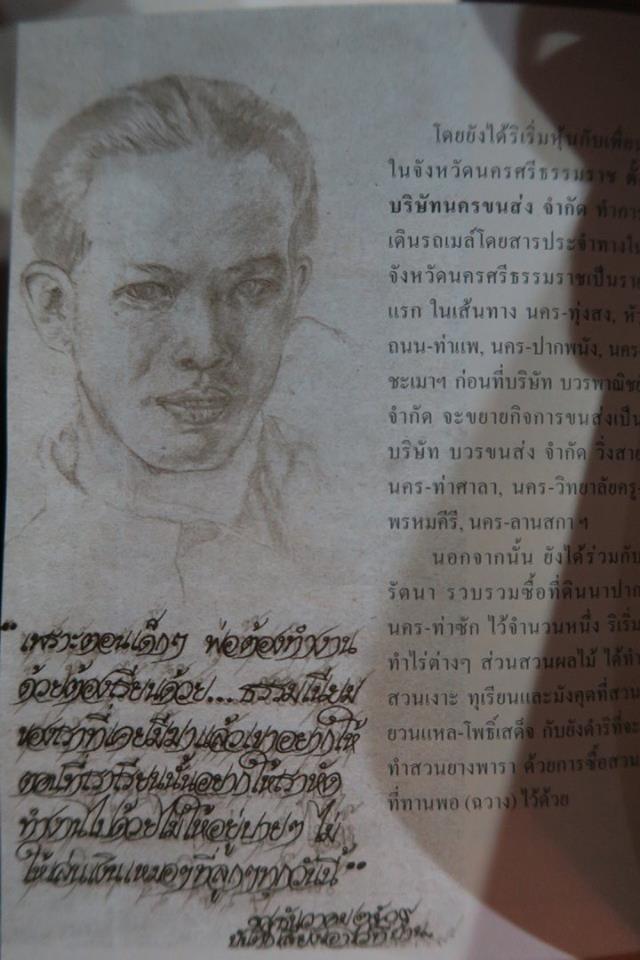 โดยยังได้ริเริ่มหุ้นกับเพื่อน
ในจังหวัดนครศรีธรรมราช ตั้
บริษัทนครขนส่ง จำกัด ทำกา
เดินรถเมล์โดยสารประจำทางใน
จังหวัดนครศรีธรรมราชเป็นราย
แรก ในเส้นทาง นคร-ทุ่งสง, หัว
ถนน-ท่าแพ, นคร-ปากพนัง, นคร-
ชะเมาฯ ก่อนที่บริษัท บวรพาณิชย์
จำกัด จะขยายกิจการขนส่งเป็น
บริษัท บวรขนส่ง จำกัด วิ่งสาย
นคร-ท่าศาลา, นคร-วิทยาลัยครู-
พรหมคีรี, นคร-ลานสกา ฯ
นอกจากนั้น ยังได้ร่วมกับ
รัตนา รวบรวมซื้อที่ดินนาปาก
นคร-ท่าซัก ไว้จำนวนหนึ่ง ริเริ่ม
ทำไร่ต่างๆ ส่วนสวนผลไม้ ได้ทำ
สวนเงาะ ทุเรียนและมังคุดที่สวน
ยวนแหล-โพธิ์เสด็จ กับยังดำริที่จะ
ทำสวนยางพารา ด้วยการซื้อสวน
ที่ทานพอ (ฉวาง) ไว้ด้วย
"เพราะตอนเด็กๆ พ่อต้องทำงาน
ด้วยต้องเรียนด้วย... ธรรมเนียม
ของเราที่เคยมีมาแล้วเขาอยากให้
ตอนที่เราเรียนนั้นอยากให้เราหัด
ทำงานไปด้วยไม่ให้อยู่บายๆ ไม่
ให้เล่นเหมือนเหมอๆที่ลูกๆทุกวันนี้"